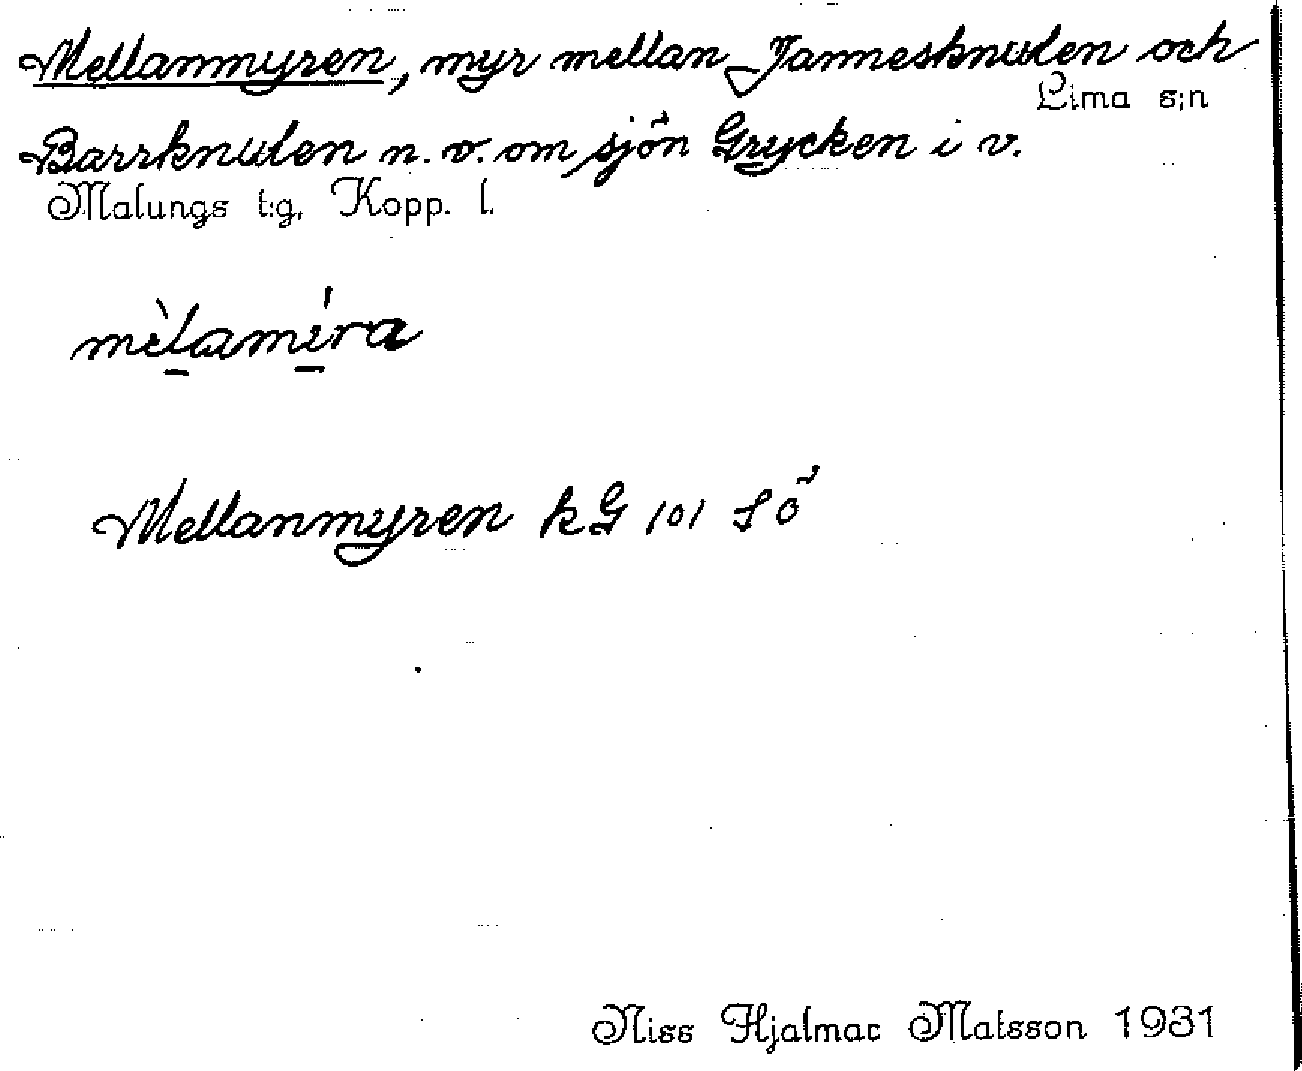 Mellanmyren, myr mellan Jannesknulen och
Lima s:n
Barrknulen n.v. om sjön Grycken i v.
Malungs t:g. Kopp. l.
mèlamíra
Mellanmyren kG 101 SÖ
Niss Hjalmar Matsson 1931